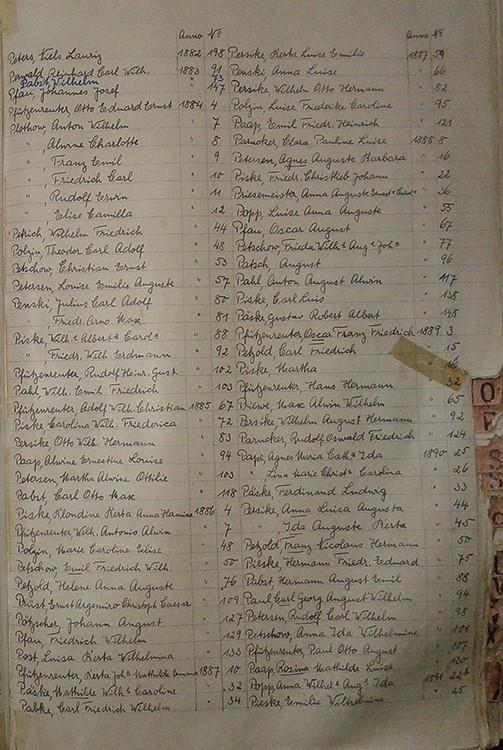 Anno Nº
Peters, Niels Lauriz 1882 198
Perwald, Reinhard Carl Wilh. 1883 91
Pabst, Wilhelm 73
Pfau, Johannes Josef " 147
Pfützenreuter, Otto Eduard Ernst 1884 4
Plothow, Anton Wilhelm " 7
" Alwine Charlotte " 8
" Franz Emil " 9
" Friedrich Carl " 10
" Rudolf Erwin " 11
" Elise Camilla " 12
Petrich, Wilhelm Friedrich " 44
Polzin, Theodor Carl Adolf " 48
Petschow, Christian Ernst " 53
Petersen, Louise Emilie Auguste " 57
Penski, Julius Carl Adolf " 80
" Friedr. Arno Max " 81
Piske, Wilh. Albert Carl " 88
" Friedr. Wilh. Erdmann " 92
Pfützenreuter, Rudolf Heinr. Gust " 102
Pahl, Wilh. Emil Friedrich " 103
Pfützenreuter, Adolf Wilh. Christian 1885 67
Piske Caroline Wilh. Friederica " 72
Persike, Otto Wilh. Hermann " 83
Paap, Alwine Ernestine Louise " 94
Petersen, Martha Alwine Ottilie " 103
Pabst, Carl Otto Max " 118
Piske, Klondine Berta Anna Hermine 1886 4
Pfützenreuter Wilh. Antonio Alwin " 7
Polzin, Marie Caroline Elise " 48
Petschow, Emil Friedrich Wilh. " 50
Petzold, Helene Anna Auguste " 76
Prüst, Ernst Argemiro Christoph Caesar " 109
Pötzscher, Johann August " 127
Pfau, Friedrich Wilhelm " 129
Post, Luisa Berta Wilhelmina " 133
Pfützenreuter, Berta Joh. Mathilde Emma 1887 10
Päske, Mathilde Wilh. Caroline " 32
Pabke, Carl Friedrich Wilhelm " 34
Anno Nº
Persike, Berta Luise Emilie 1887 59
Penski, Anna Luise " 66
Persike Wilhelm Otto Hermann " 82
Polzin, Luise Friederike Caroline " 95
Paap, Emil Friedr. Heinrich " 121
Parucker, Clara Pauline Luise 1888 8
Petersen, Agnes Auguste Barbara " 16
Piske, Friedr. Christlieb Johann " 22
Priesemeister, Anna Auguste " 36
Popp, Luise Anna Auguste " 55
Pfau, Oscar August " 67
Petschow, Frieda Wilh. Aug. Joh. " 77
Patsch, August " 96
Pahl, Anton August Alwin " 117
Piske, Carl Luis " 138
Päske, Gustav Robert Albert " 148
Pfützenreuter, Oscar Franz Friedrich 1889 3
Petzold, Carl Friedrich 15
Piske, Martha 16
Pfützenreuter, Hans Hermann " 32
Max Alwin Wilhelm " 65
Persike, Wilhelm August Hermann " 92
Parucker, Rudolf Oswald Friedrich " 124
Pape, Agnes Maria Cath. Ida 1890 25
" Lina Marie Christ. Carolina " 26
Päske, Ferdinand Ludwig " 33
Persike, Anna Luisa Augusta " 44
" Ida Auguste Berta " 45
Petzold, Franz Nicolaus Hermann " 50
Pieske, Hermann Friedr. Eduard " 75
Pabst, Hermann August Emil " 88
Paul, Carl Georg August Wilhelm " 94
Petersen, Rudolf Carl Wilhelm " 98
Petschow, Anna Ida Wilhelmine " 101
Pfützenreuter, Paul Otto August " 107
Paap, Rosina Mathilde Luise " 130
Popp, Anna Wilh. Aug. Ida 1891 22b
Pieske, Emilie Wilhelmine " 25